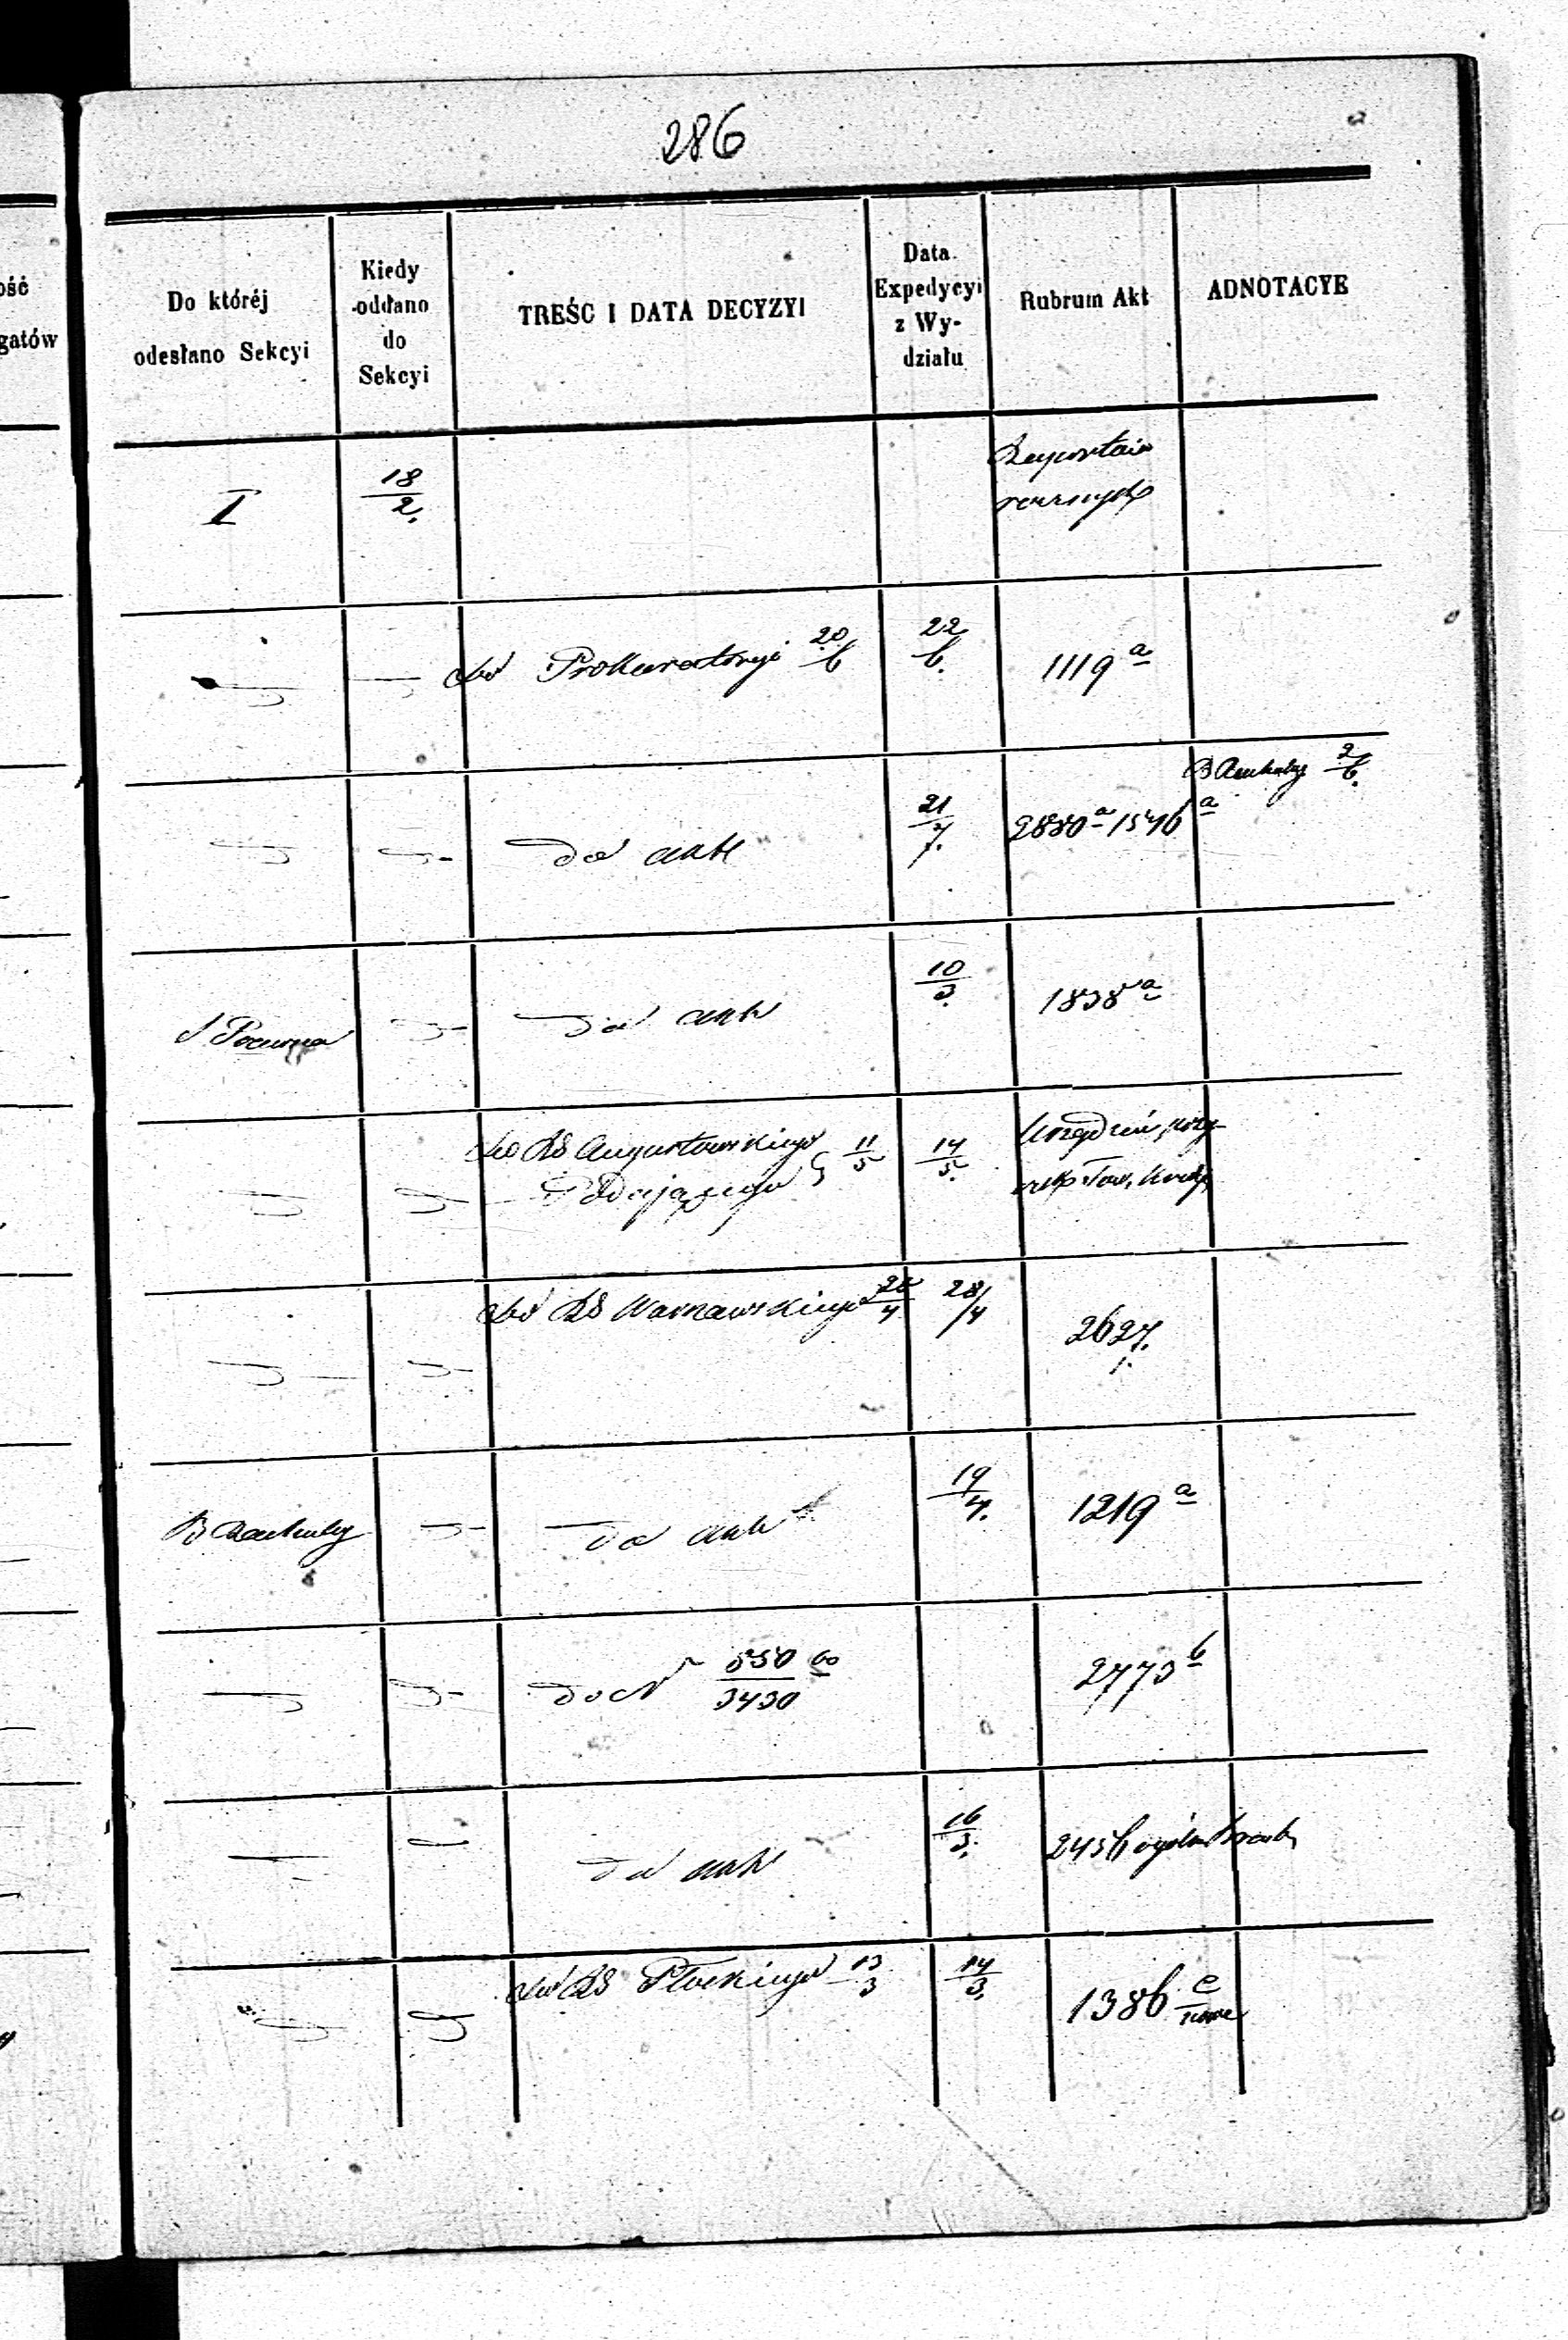 286
ość
gatów
Do któréj
odesłano Sekcyi
Kiedy
oddano
do
Sekcyi
TREŚC I DATA DECYZYI
Data
Expedycyi
z Wy-
działu
Rubrum Akt
ADNOTACYE
I
18/2.
Do Prokuratoryi 20/6
22/6.
1119 a
do akt
21/7.
2880 a 1546 a
2/6.
do akt
10/3.
1838 a
Do RG Augustowskiego
Podającego } 11/5
14/5.
Do RG Warszawskiego
4
28/4
2627.
do akt
19/4.
1219 a
do N 850/3430
2773 b
do akt
16/3.
2456
Do RG Płockiego 13/3
14/3.
1386 c